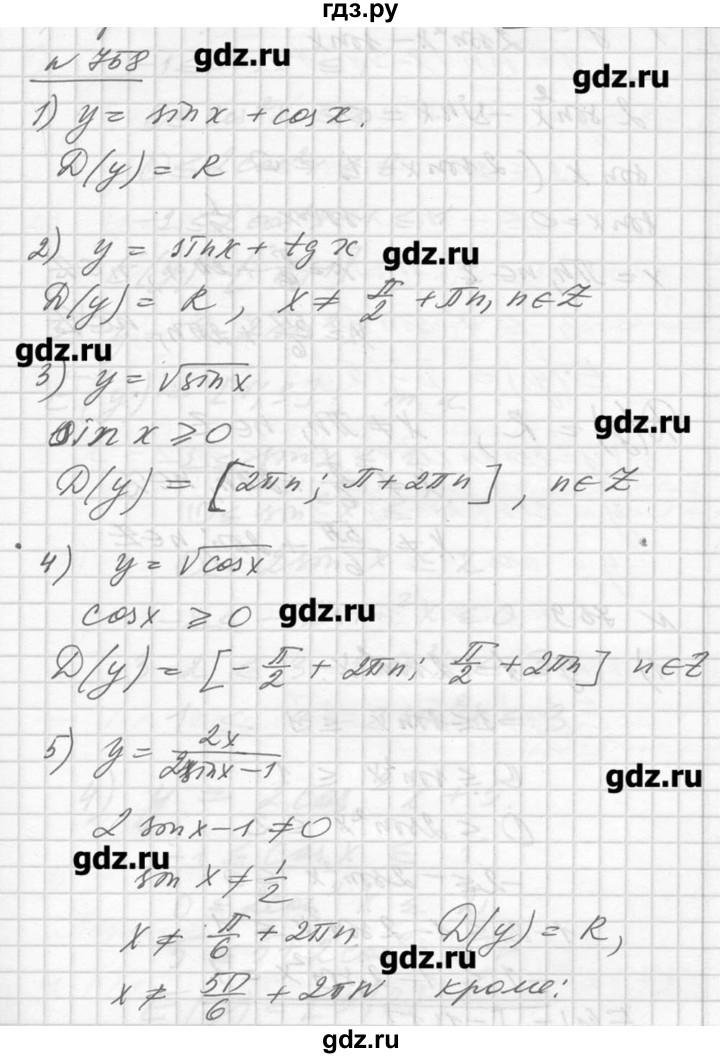 гдз.ру
№ 758
gdz.ru
1) y = sin x + cos x.
D(y) = R
gdz.ru
2) y = sin x + tg x
gdz.ru
D(y) = R, x ≠ π/2 + πn, n ∈ Z
gdz.ru
3) y = √sin x
gdz.ru
sin x ⩾ 0
D(y) = [2πn; π + 2πn], n ∈ Z
4) y = √cos x
cos x ⩾ 0
gdz.ru
D(y) = [-π/2 + 2πn; π/2 + 2πn] n ∈ Z
5) y = 2x/(2sin x - 1)
gdz.ru
2 sin x - 1 ≠ 0
gdz.ru
sin x ≠ 1/2
x ≠ π/6 + 2πn D(y) = R,
gdz.ru
x ≠ 5π/6 + 2πn кроме:
gdz.ru